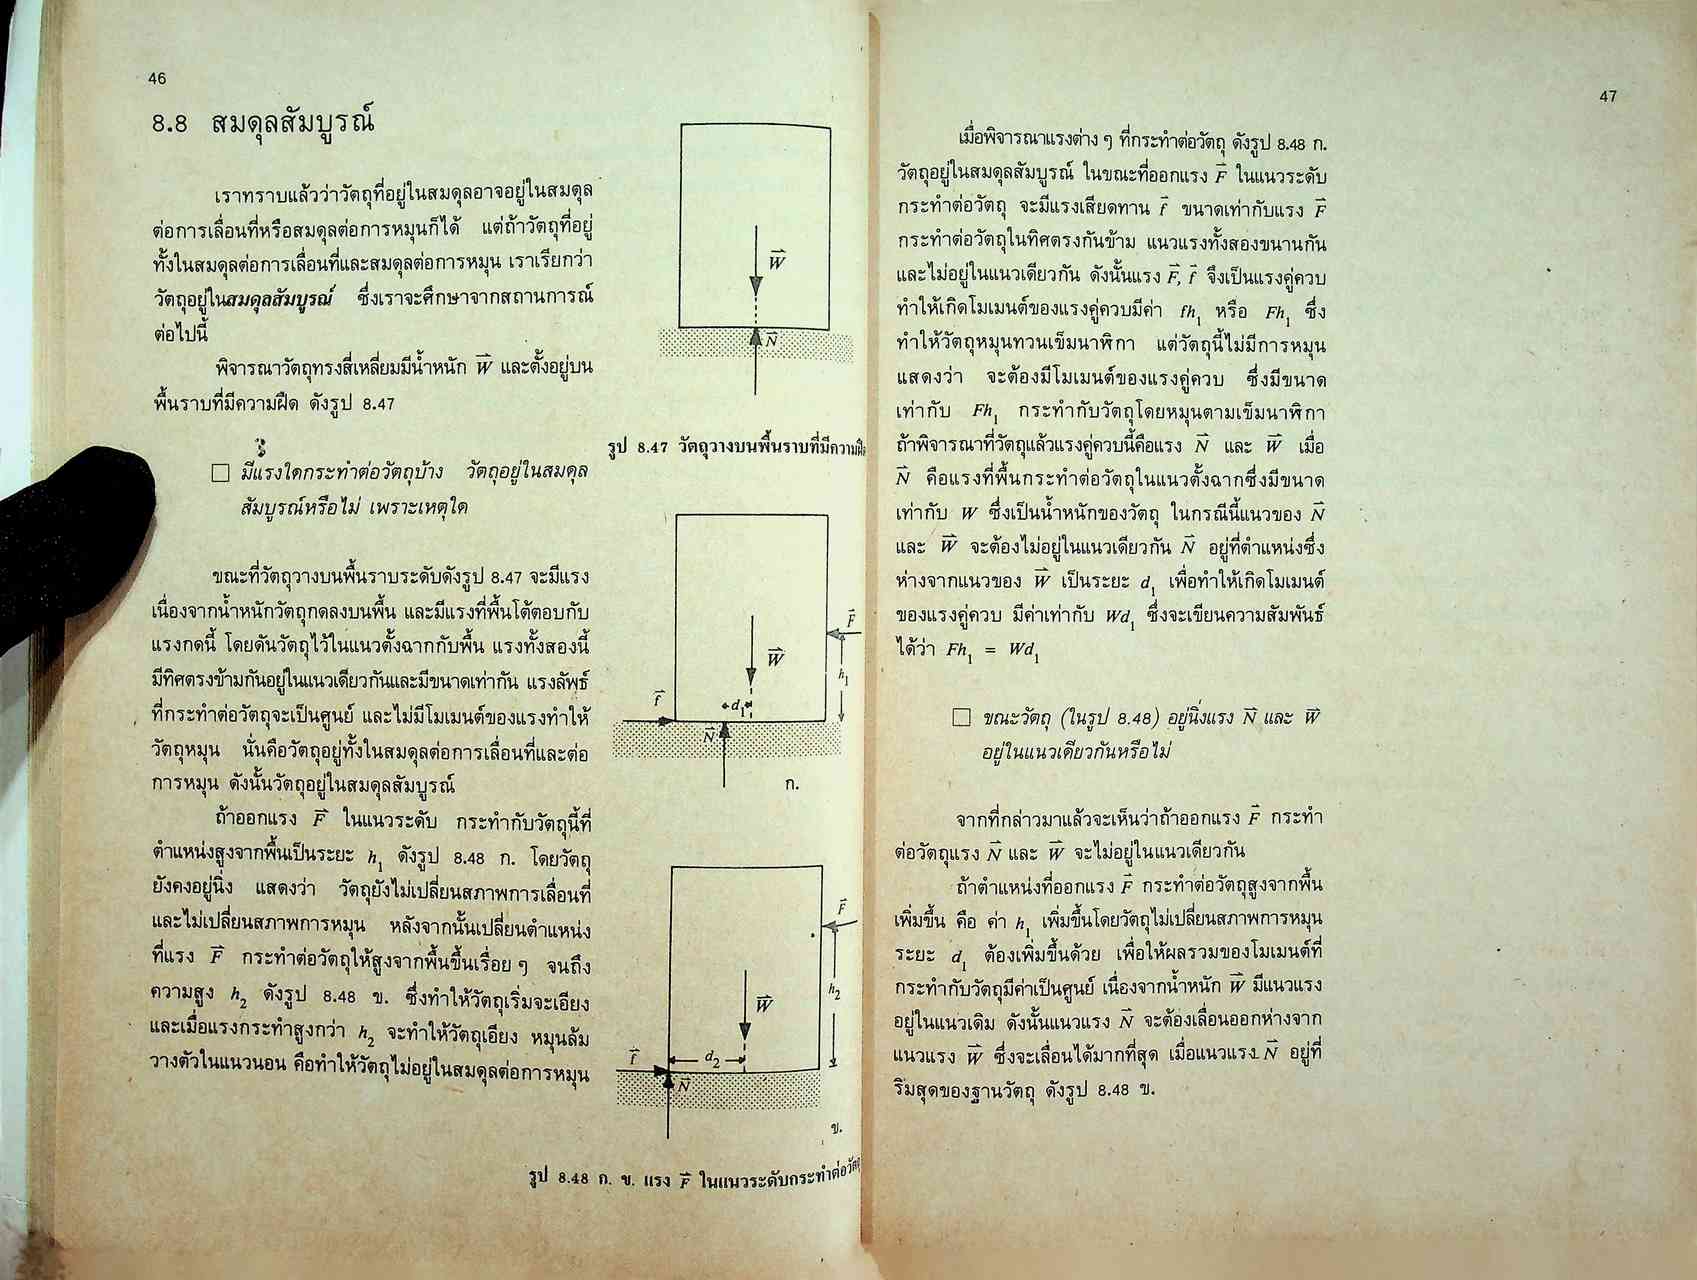 46
8.8 สมดุลสัมบูรณ์
เราทราบแล้วว่าวัตถุที่อยู่ในสมดุลอาจอยู่ในสมดุล
ต่อการเลื่อนที่หรือสมดุลต่อการหมุนก็ได้ แต่ถ้าวัตถุที่อยู่
ทั้งในสมดุลต่อการเลื่อนที่และสมดุลต่อการหมุน เราเรียกว่า
วัตถุอยู่ในสมดุลสัมบูรณ์ ซึ่งเราจะศึกษาจากสถานการณ์
ต่อไปนี้
พิจารณาวัตถุทรงสี่เหลี่ยมมีน้ำหนัก W⃗ และตั้งอยู่บน
พื้นราบที่มีความฝืด ดังรูป 8.47
□ มีแรงใดกระทำต่อวัตถุบ้าง วัตถุอยู่ในสมดุล
สัมบูรณ์หรือไม่ เพราะเหตุใด
ขณะที่วัตถุวางบนพื้นราบระดับดังรูป 8.47 จะมีแรง
เนื่องจากน้ำหนักวัตถุกดลงบนพื้น และมีแรงที่พื้นโต้ตอบกับ
แรงกดนี้ โดยดันวัตถุไว้ในแนวตั้งฉากกับพื้น แรงทั้งสองนี้
มีทิศตรงข้ามกันอยู่ในแนวเดียวกันและมีขนาดเท่ากัน แรงลัพธ์
ที่กระทำต่อวัตถุจะเป็นศูนย์ และไม่มีโมเมนต์ของแรงทำให้
วัตถุหมุน นั่นคือวัตถุอยู่ทั้งในสมดุลต่อการเลื่อนที่และต่อ
การหมุน ดังนั้นวัตถุอยู่ในสมดุลสัมบูรณ์
ถ้าออกแรง F⃗ ในแนวระดับ กระทำกับวัตถุนี้ที่
ตำแหน่งสูงจากพื้นเป็นระยะ h₁ ดังรูป 8.48 ก. โดยวัตถุ
ยังคงอยู่นิ่ง แสดงว่า วัตถุยังไม่เปลี่ยนสภาพการเลื่อนที่
และไม่เปลี่ยนสภาพการหมุน หลังจากนั้นเปลี่ยนตำแหน่ง
ที่แรง F⃗ กระทำต่อวัตถุให้สูงจากพื้นขึ้นเรื่อย ๆ จนถึง
ความสูง h₂ ดังรูป 8.48 ข. ซึ่งทำให้วัตถุเริ่มจะเอียง
และเมื่อแรงกระทำสูงกว่า h₂ จะทำให้วัตถุเอียง หมุนล้ม
วางตัวในแนวนอน คือทำให้วัตถุไม่อยู่ในสมดุลต่อการหมุน
W⃗
N⃗
รูป 8.47 วัตถุวางบนพื้นราบที่มีความฝืด
F⃗
W⃗
h₁
f⃗
d₁
N⃗
ก.
F⃗
h₂
W⃗
f⃗
d₂
N⃗
ข.
รูป 8.48 ก. ข. แรง F⃗ ในแนวระดับกระทำต่อวัตถุ
47
เมื่อพิจารณาแรงต่าง ๆ ที่กระทำต่อวัตถุ ดังรูป 8.48 ก.
วัตถุอยู่ในสมดุลสัมบูรณ์ ในขณะที่ออกแรง F⃗ ในแนวระดับ
กระทำต่อวัตถุ จะมีแรงเสียดทาน f⃗ ขนาดเท่ากับแรง F⃗
กระทำต่อวัตถุในทิศตรงกันข้าม แนวแรงทั้งสองขนานกัน
และไม่อยู่ในแนวเดียวกัน ดังนั้นแรง F⃗, f⃗ จึงเป็นแรงคู่ควบ
ทำให้เกิดโมเมนต์ของแรงคู่ควบมีค่า fh₁ หรือ Fh₁ ซึ่ง
ทำให้วัตถุหมุนทวนเข็มนาฬิกา แต่วัตถุนี้ไม่มีการหมุน
แสดงว่า จะต้องมีโมเมนต์ของแรงคู่ควบ ซึ่งมีขนาด
เท่ากับ Fh₁ กระทำกับวัตถุโดยหมุนตามเข็มนาฬิกา
ถ้าพิจารณาที่วัตถุแล้วแรงคู่ควบนี้คือแรง N⃗ และ W⃗ เมื่อ
N⃗ คือแรงที่พื้นกระทำต่อวัตถุในแนวตั้งฉากซึ่งมีขนาด
เท่ากับ W ซึ่งเป็นน้ำหนักของวัตถุ ในกรณีนี้แนวของ N⃗
และ W⃗ จะต้องไม่อยู่ในแนวเดียวกัน N⃗ อยู่ที่ตำแหน่งซึ่ง
ห่างจากแนวของ W⃗ เป็นระยะ d₁ เพื่อทำให้เกิดโมเมนต์
ของแรงคู่ควบ มีค่าเท่ากับ Wd₁ ซึ่งจะเขียนความสัมพันธ์
ได้ว่า Fh₁ = Wd₁
□ ขณะวัตถุ (ในรูป 8.48) อยู่นิ่งแรง N⃗ และ W⃗
อยู่ในแนวเดียวกันหรือไม่
จากที่กล่าวมาแล้วจะเห็นว่าถ้าออกแรง F⃗ กระทำ
ต่อวัตถุแรง N⃗ และ W⃗ จะไม่อยู่ในแนวเดียวกัน
ถ้าตำแหน่งที่ออกแรง F⃗ กระทำต่อวัตถุสูงจากพื้น
เพิ่มขึ้น คือ ค่า h₁ เพิ่มขึ้นโดยวัตถุไม่เปลี่ยนสภาพการหมุน
ระยะ d₁ ต้องเพิ่มขึ้นด้วย เพื่อให้ผลรวมของโมเมนต์ที่
กระทำกับวัตถุมีค่าเป็นศูนย์ เนื่องจากน้ำหนัก W⃗ มีแนวแรง
อยู่ในแนวเดิม ดังนั้นแนวแรง N⃗ จะต้องเลื่อนออกห่างจาก
แนวแรง W⃗ ซึ่งจะเลื่อนได้มากที่สุด เมื่อแนวแรง N⃗ อยู่ที่
ริมสุดของฐานวัตถุ ดังรูป 8.48 ข.